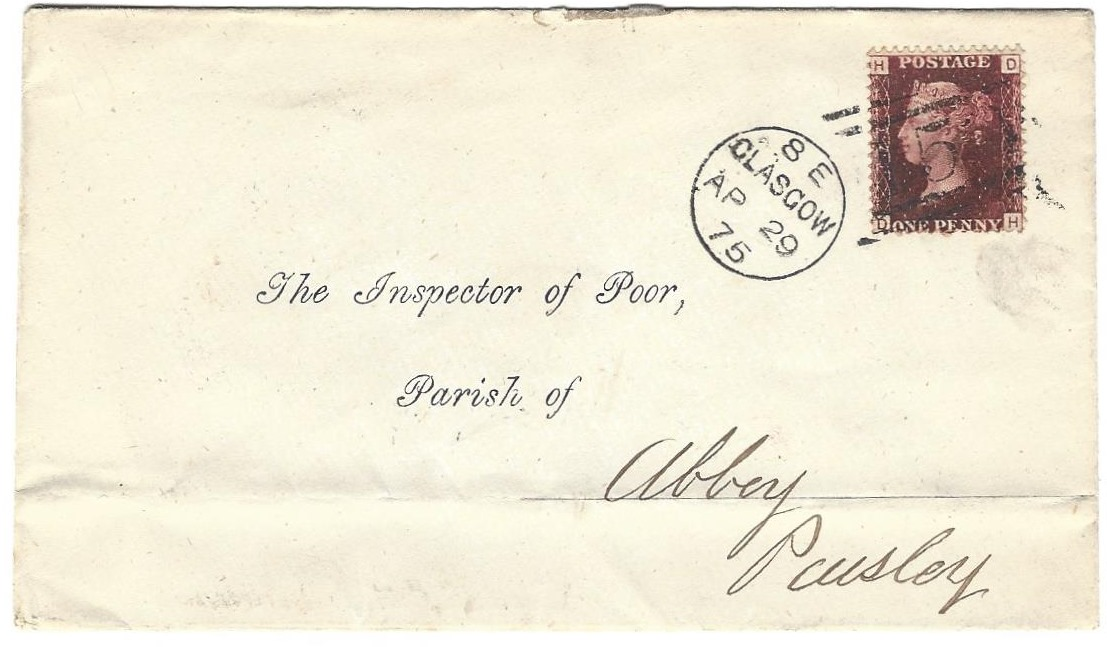 H POSTAGE D
D ONE PENNY H
8 E
GLASGOW
AP 29
75
The Inspector of Poor,
Parish of
Abbey
Paisley